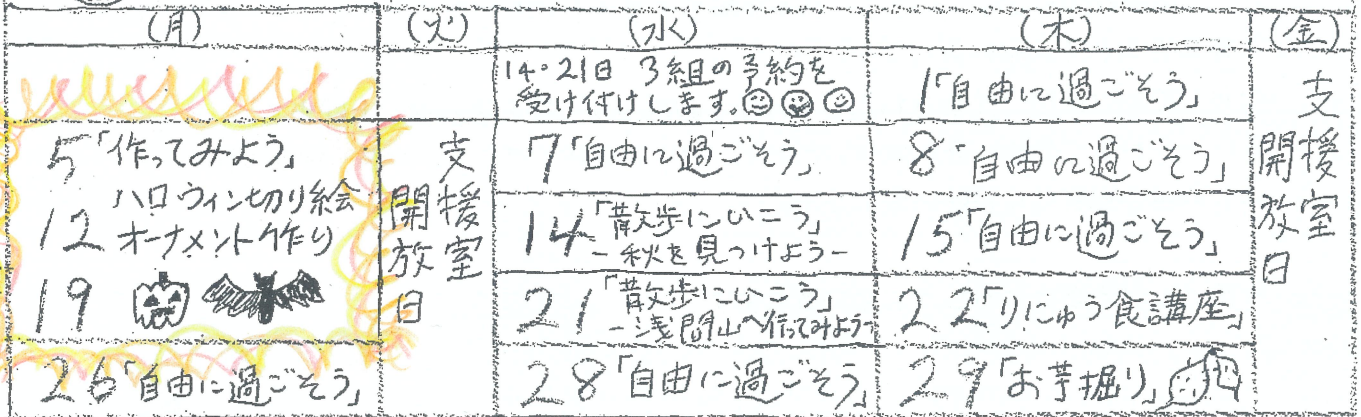 (月) (火) (水) (木) (金)
14・21日 3組の予約を
受け付けします。
1「自由に過ごそう」
5「作ってみよう」
ハロウィン切り絵
12 オーナメント作り
19
支援室
開放日
7「自由に過ごそう」
8「自由に過ごそう」
14「散歩にいこう」
-秋を見つけよう-
15「自由に過ごそう」
21「散歩にいこう」
-浅間山へ行ってみよう-
22「りにゅう食講座」
支援室
開放日
26「自由に過ごそう」
28「自由に過ごそう」
29「お芋掘り」